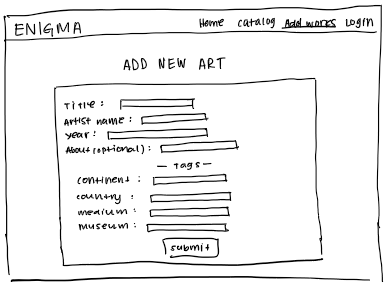 ENIGMA Home catalog Add works Login
ADD NEW ART
Title :
Artist name :
year :
About (optional) :
— Tags —
continent :
country :
medium :
museum :
submit